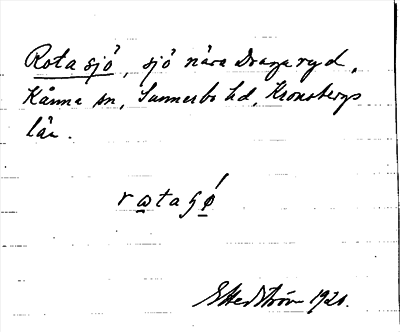 Rotasjö, sjö nära Draparyd,
Kånna sn, Sunnerbo hd, Kronobergs
län.
rωtaʂǿ
GHedström 1920.